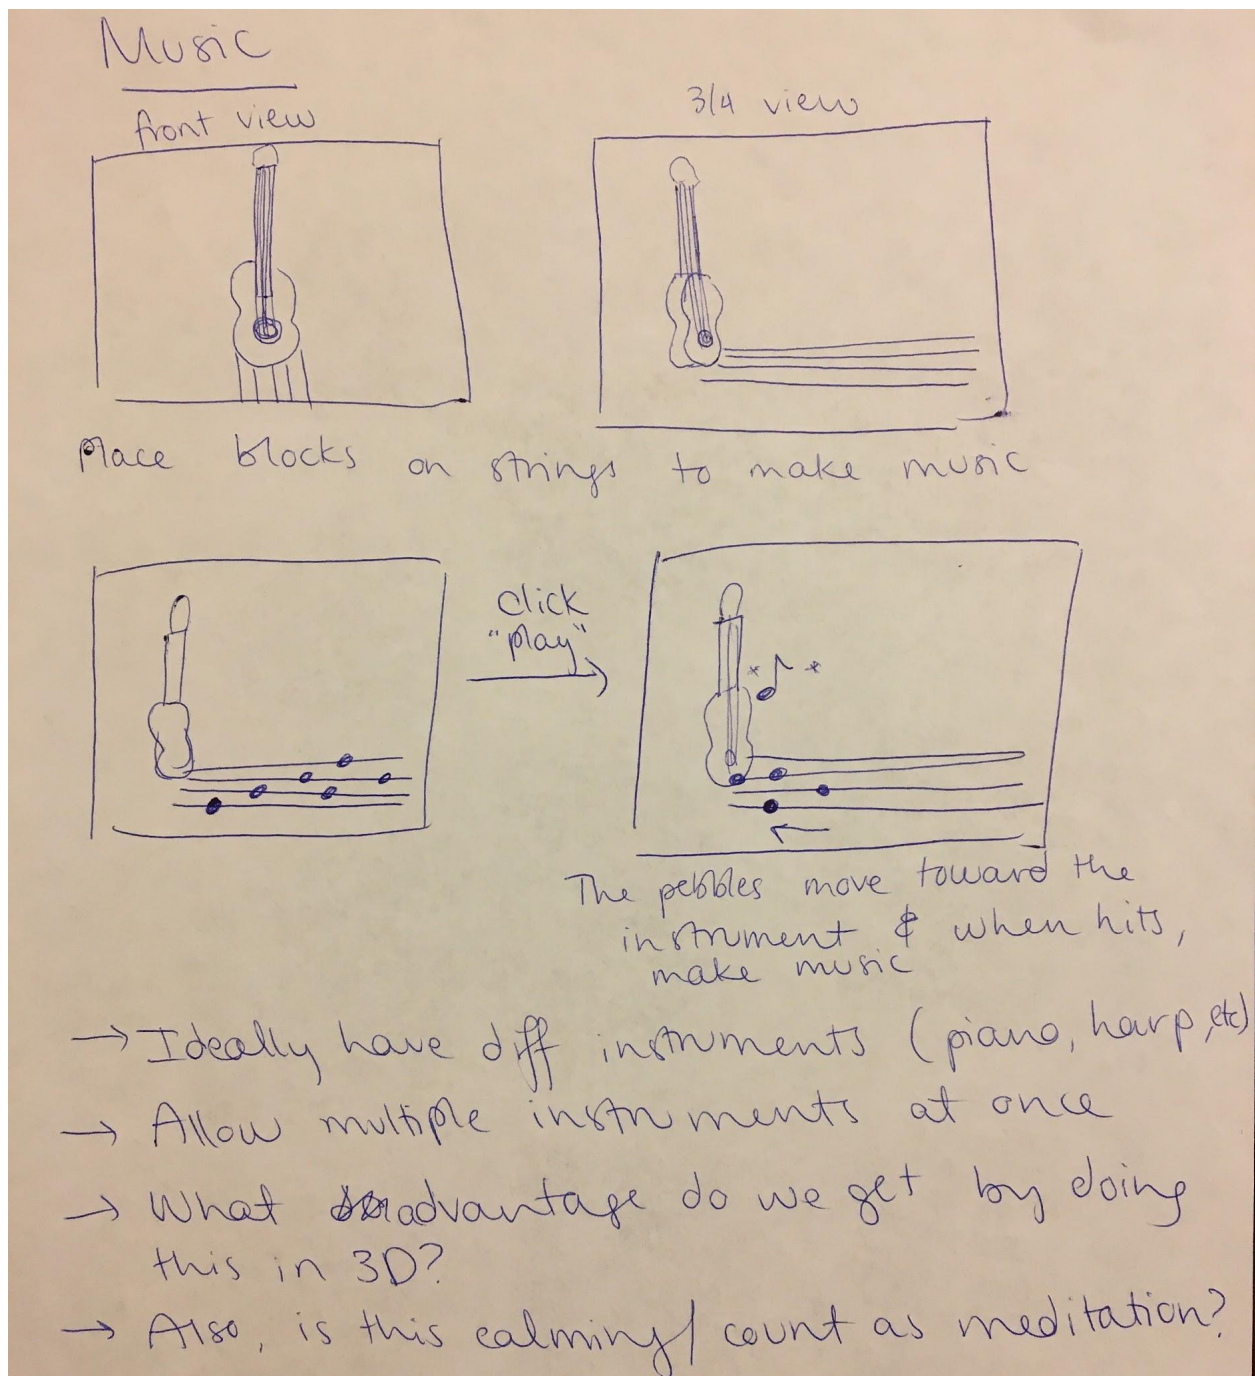 Music
front view
3/4 view
Place blocks on strings to make music
click
"play"
The pebbles move toward the
instrument & when hits,
make music
→ Ideally have diff instruments (piano, harp, etc)
→ Allow multiple instruments at once
→ What advantage do we get by doing
this in 3D?
→ Also, is this calming/ count as meditation?